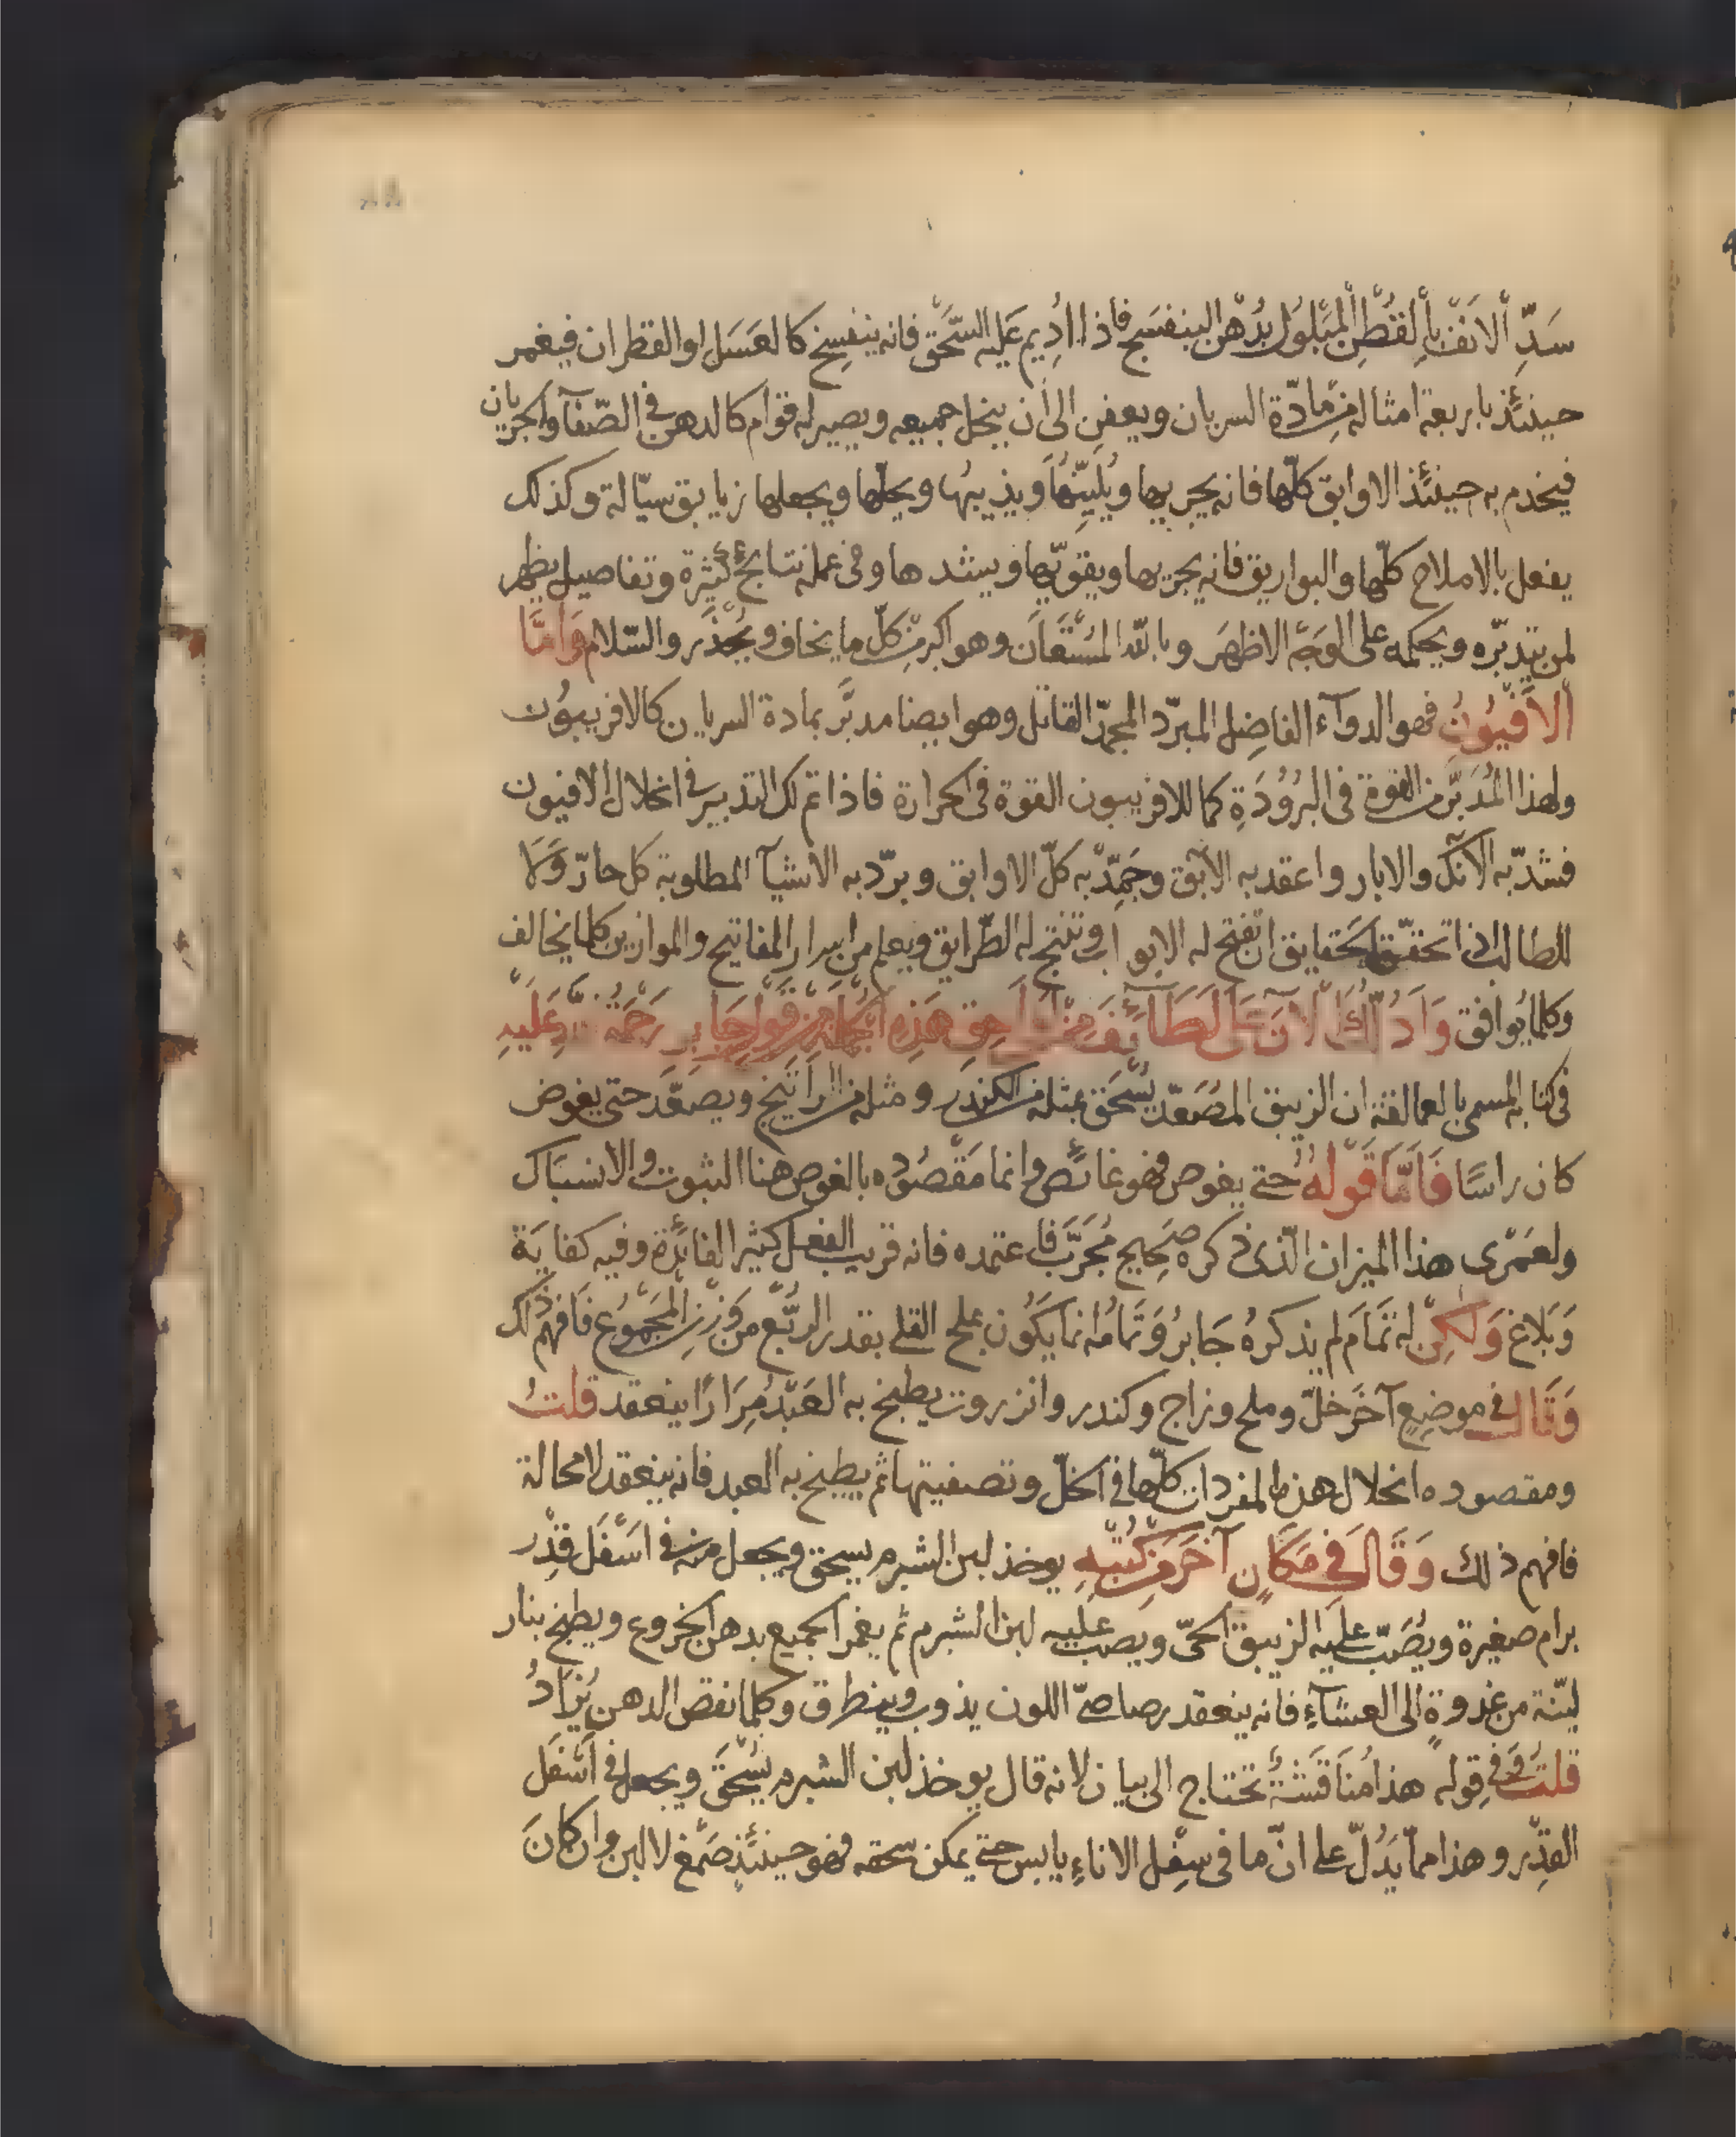 سَدِّ الأنْف بالقُطْنِ المبَلول بدُهْن البنفسَج فاذا اُدِيم عَليه السَّحْق فانه ينفسِخ كالعَسَل او القطران فيغمر
حينئذ باربعة امثاله من مادّة السريان ويعفن الى أن ينحل جميعه ويصير له قوام كالدهن فى الصّفآ والجريان
فيخدم به حينئذ الاوابق كلّها فانه يجريها ويُليّنُها ويذيبُها ويحلّها ويجعلها زيابق سيّالة وكذلك
يفعل بالاملاح كلّها والبواريق فانه يجريها ويقوّيها ويشدها وفى عمله نتايج كثيرة وتفاصيل يظهر
لمن يتدبّره ويحكمه على الوجَه الاظهَر وبالله المسْتعَان وهو اكبر من كلّ ما يخاف ويُحْذَر والسّلام وَامَّا
الأفيُونُ فهو الدوآء الفاضِل المبرّد المجمّد القاتل وهو ايضا مدبَّر بمادة السريان كالافربيون
ولهذا المُدَبَّر من القوة فى البرُودَةِ كما للافربيون القوة فى الحرارة فاذا تم لك التدبير فى انحلال الافيون
فشدّ به الآنك والابار واعقد به الآبق وجَمِّدْ به كلّ الاوابق وبرّد به الاشيآ المطلوبة كل حارّ وَلا
للطالب اذا تحقّق الحقايق ان تفتح له الابواب وتنتج له الطّرايق ويعلم من اسرار المفاتيح والموازين كلما يخالف
وكلما يُوافق وَادُلّكَ الآنَ عَلى لَطَآئِفَ مِنْ لوَاحِق هَذِهِ الجُملَة مِنْ قَوْلِ جَابِر رَحْمَةُ اللّهِ عَليْهِ
فى كتابه المسمى بالعمالقة ان الزيبق المصَعّد يُسْحَق بمثله من الكندَر ومثله من الراتينج ويصعّد حتى يغوض
كان راسًا فَاَمَّا قَوْلُهُ حتى يغوص فهو غائص وانما مَقْصُوده بالغوص هنا الثبوت والانسبَاك
ولعَمْرى هذا الميزان الّذى ذكره صَحِيح مُجَرَّب فاعتمده فانه قريب الفعل كثير الفائدة وفيه كفايَة
وَبَلاغ وَلكِنْ له تَمَام لم يذكرهُ جَابرُ وَتمامُه انما يَكُون بملح القلى بقدر الرُّبْع من وَزْن المجْمُوع فَافهم ذلك
وَقَال فى موضِعٍ آخَر خلّ وملح وزاج وكندر وانزروت يطبخ به العَبْد مِرَارًا ينعقد قلتُ
ومقصوده انحلال هذه المفردات كلّها فى الخلّ وتصفيتها ثم يطبخ به العبد فانه ينعقد لا محالة
فافهم ذلك وَقَالَ فى مَكَانٍ آخَرَ مِنْ كُتُبِهِ يوخذ لبن الشبرم يسحق ويجعل منه فى اسْفَل قِدْر
برام صغيرة ويُصَبّ عليه الزيبق الحىّ ويصب عليه لبن الشبرم ثم يغمر الجميع بدهن الخروع ويطبخ بنار
ليّنة من غدوة الى العشاَءِ فانه ينعقد رصاصىّ اللون يذوب وينطرق وكلما نقص الدهن يُزَادُ
قلتُ وَفى قوله هذا مُنَاقَشةٌ تحتاج الى بيان لانه قال يوخذ لبن الشبرم يُسْحَق ويجعل فى أسْفَل
القِدْر وهذا مما يَدُلّ على انّ ما فى سِفْل الاناءِ يابس حتى يمكن سحقه فهو حينئذٍ صَمْغ لا لبن وان كانَ